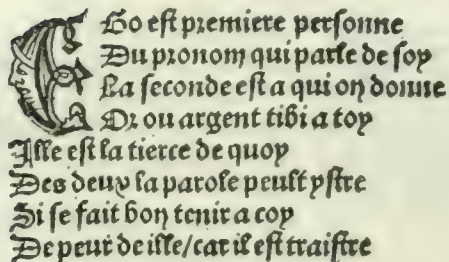 EGo eſt premiere perſonne
Du pronom qui parle de ſoy
La ſeconde eſt a qui on donne
Or ou argent tibi a toy
Ille eſt la tierce de quoy
Des deux la parole peult yſtre
Si ſe fait bon tenir a coy
De peur de ille/car il eſt traiſtre